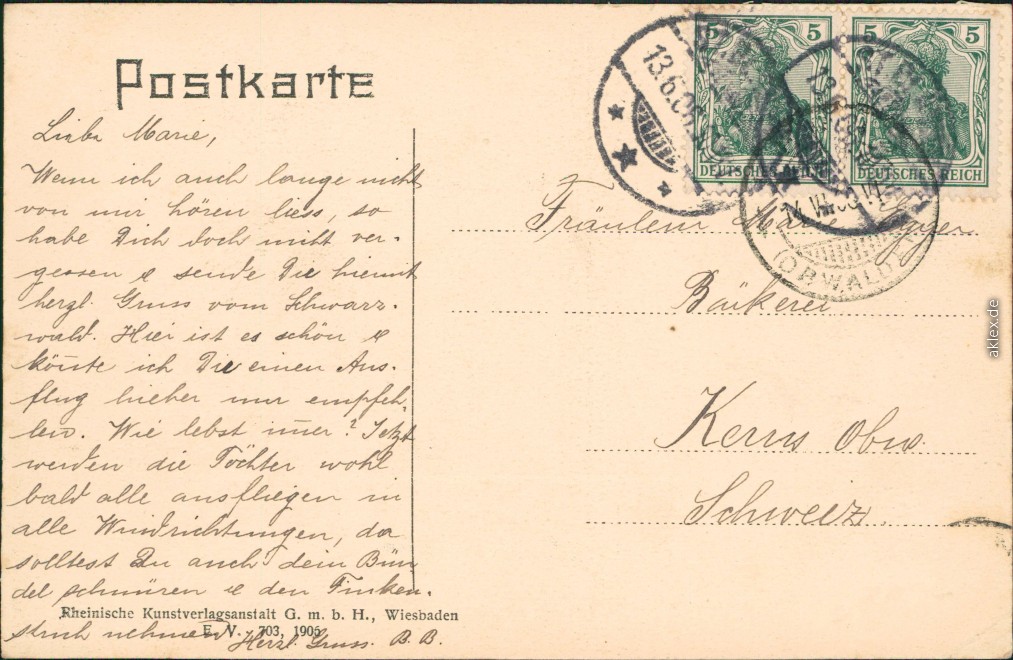 Postkarte
Liebe Marie,
Wenn ich auch lange nicht
von mir hören liess, so
habe Dich doch nicht ver-
gessen & sende Dir hiermit
herzl. Gruss vom Schwarz-
wald. Hier ist es schön &
könte ich Dir einen Aus-
flug hieher nur empfeh-
len. Wie lebst imer? Jetzt
werden die Töchter wohl
bald alle ausfliegen in
alle Windrichtungen, da
solltest Du auch dein Bün
del schnüren & den Finken-
strich nehmen
Herzl. Gruss. B. B.
Rheinische Kunstverlagsanstalt G. m. b. H., Wiesbaden
E. V. 703, 1906
5 5
DEUTSCHES REICH DEUTSCHES REICH
13.6.06
(OBWALD
Fräulein
Bäkerei
Kerns Obw.
Schweiz.
aklex.de